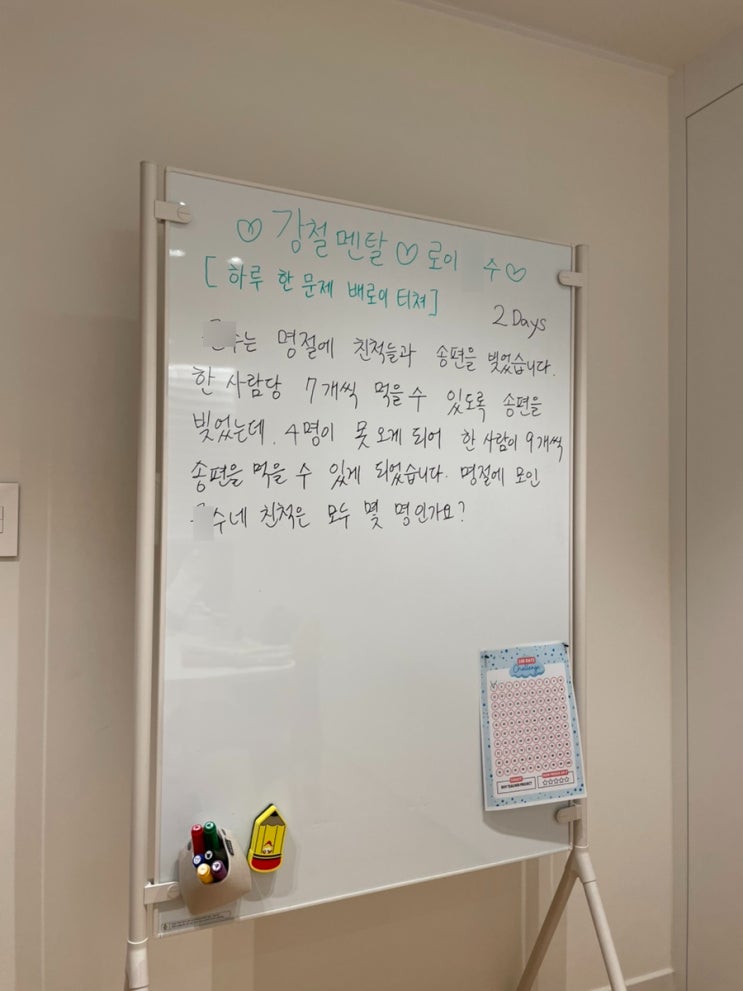 ♡ 강철멘탈 ♡ 로이 수♡
[ 하루 한 문제 배로의 터쳐 ]
2 Days
수는 명절에 친척들과 송편을 빚었습니다.
한 사람당 7개씩 먹을 수 있도록 송편을
빚었는데. 4명이 못 오게 되어 한 사람이 9개씩
송편을 먹을 수 있게 되었습니다. 명절에 모인
수네 친척은 모두 몇 명인가요?
100 DAYS
Challenge